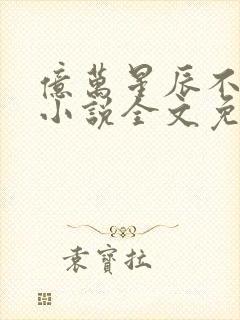 億萬星辰不
小說全文免
袁寶拉